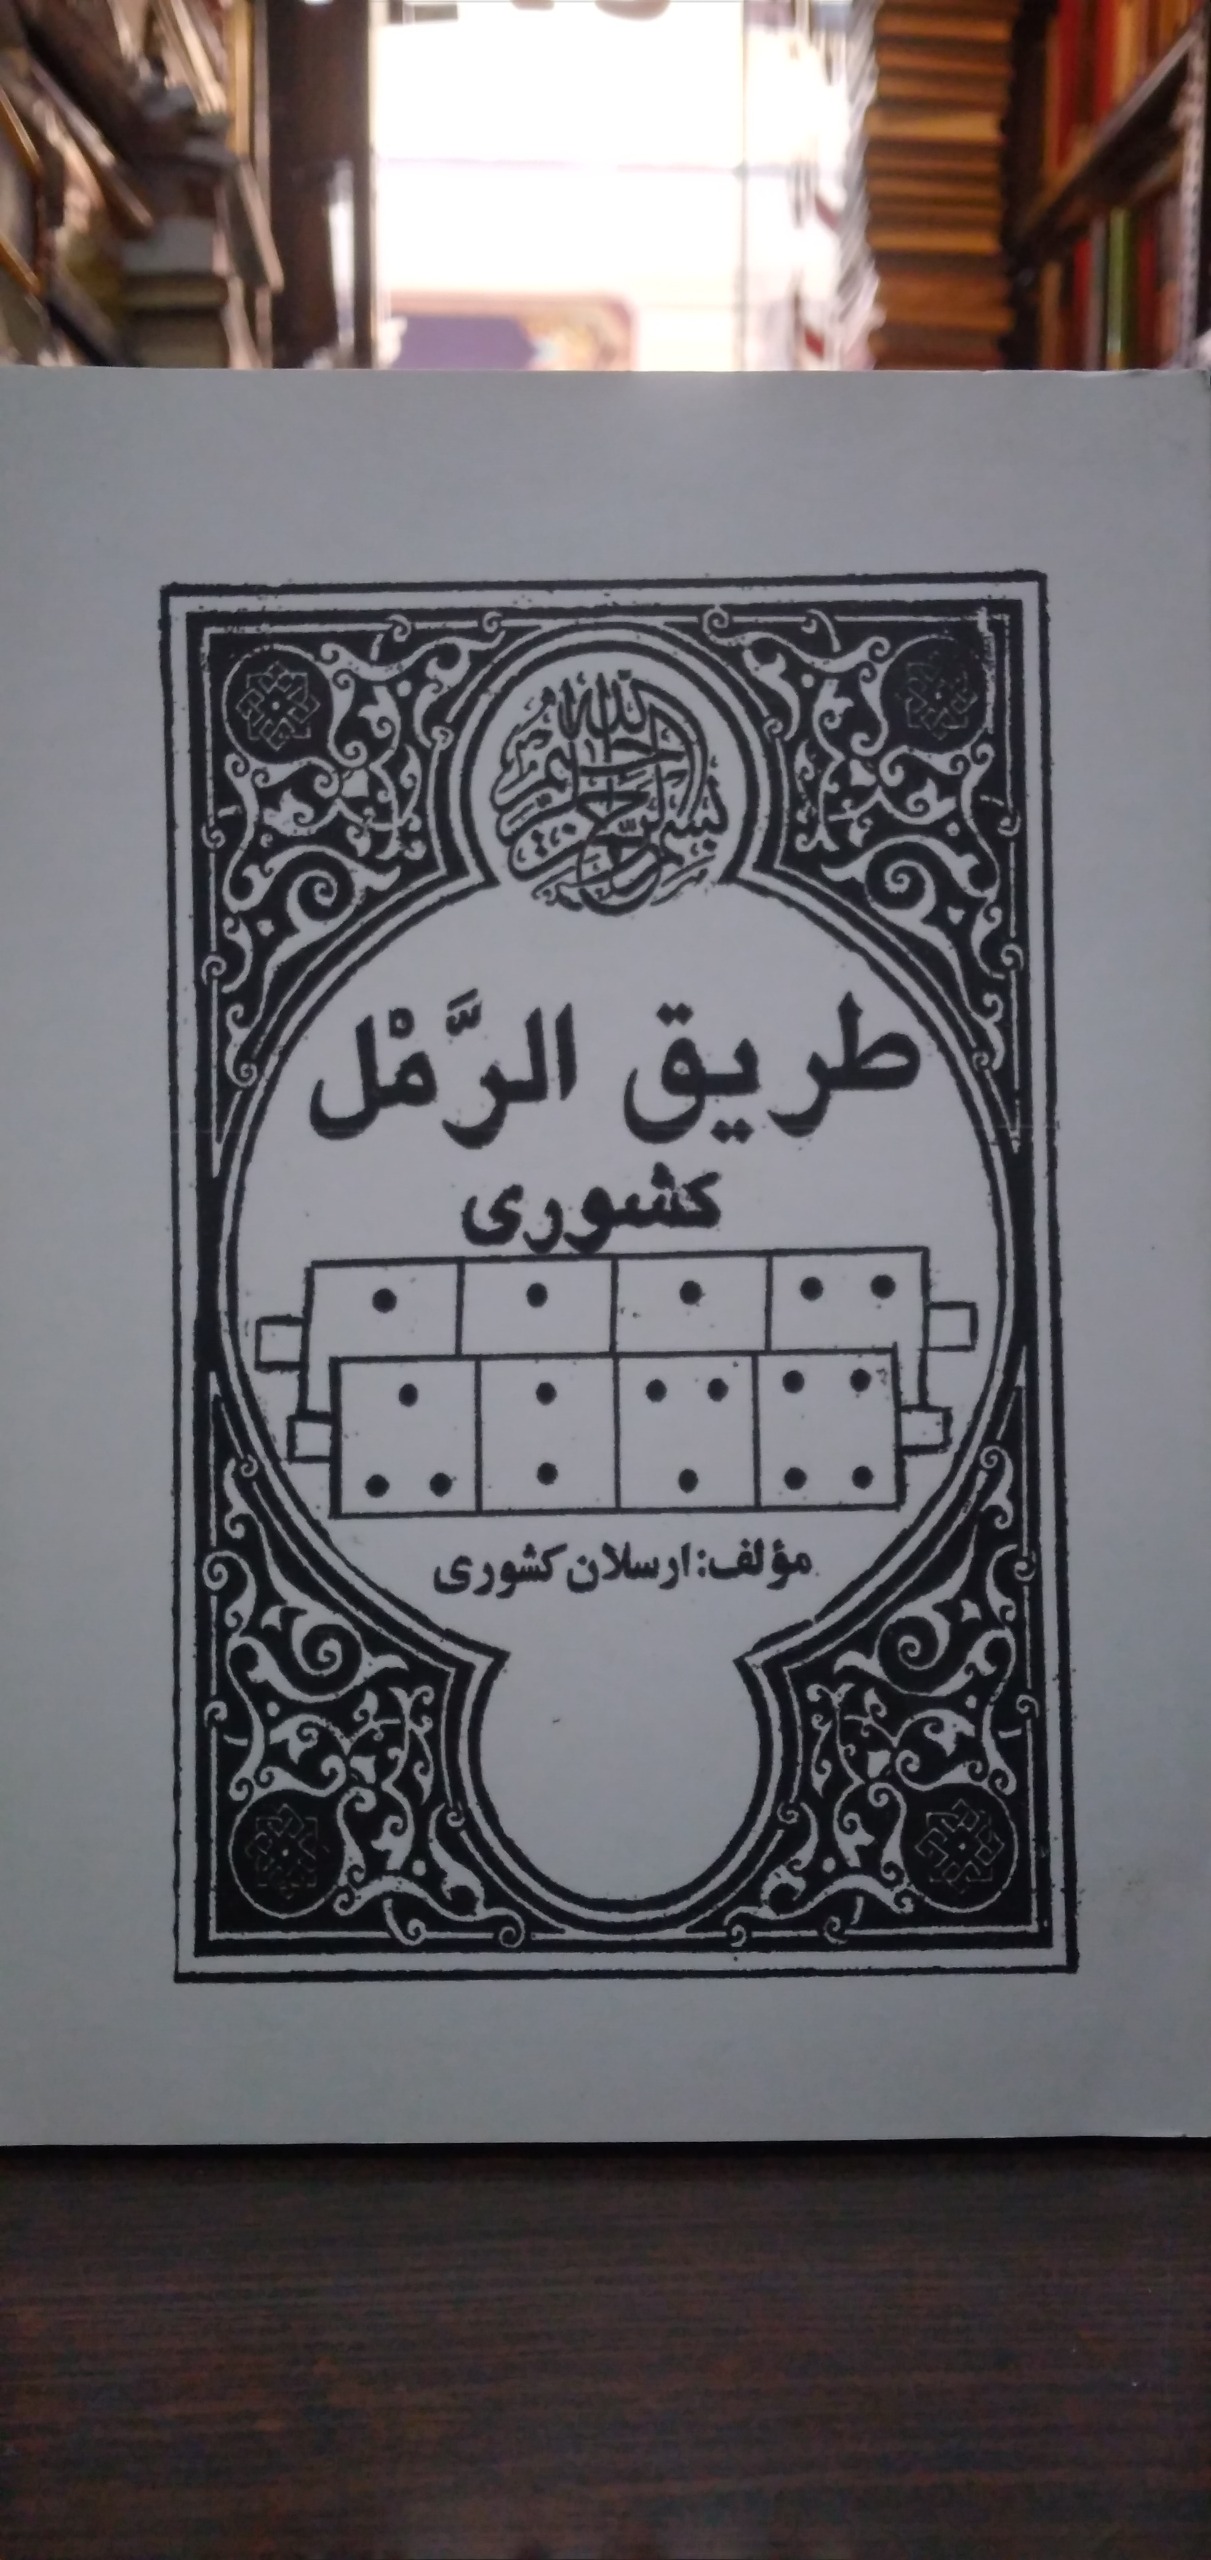 بسم الله الرحمن الرحیم
طریق الرَّمْل
کشوری
مؤلف: ارسلان کشوری